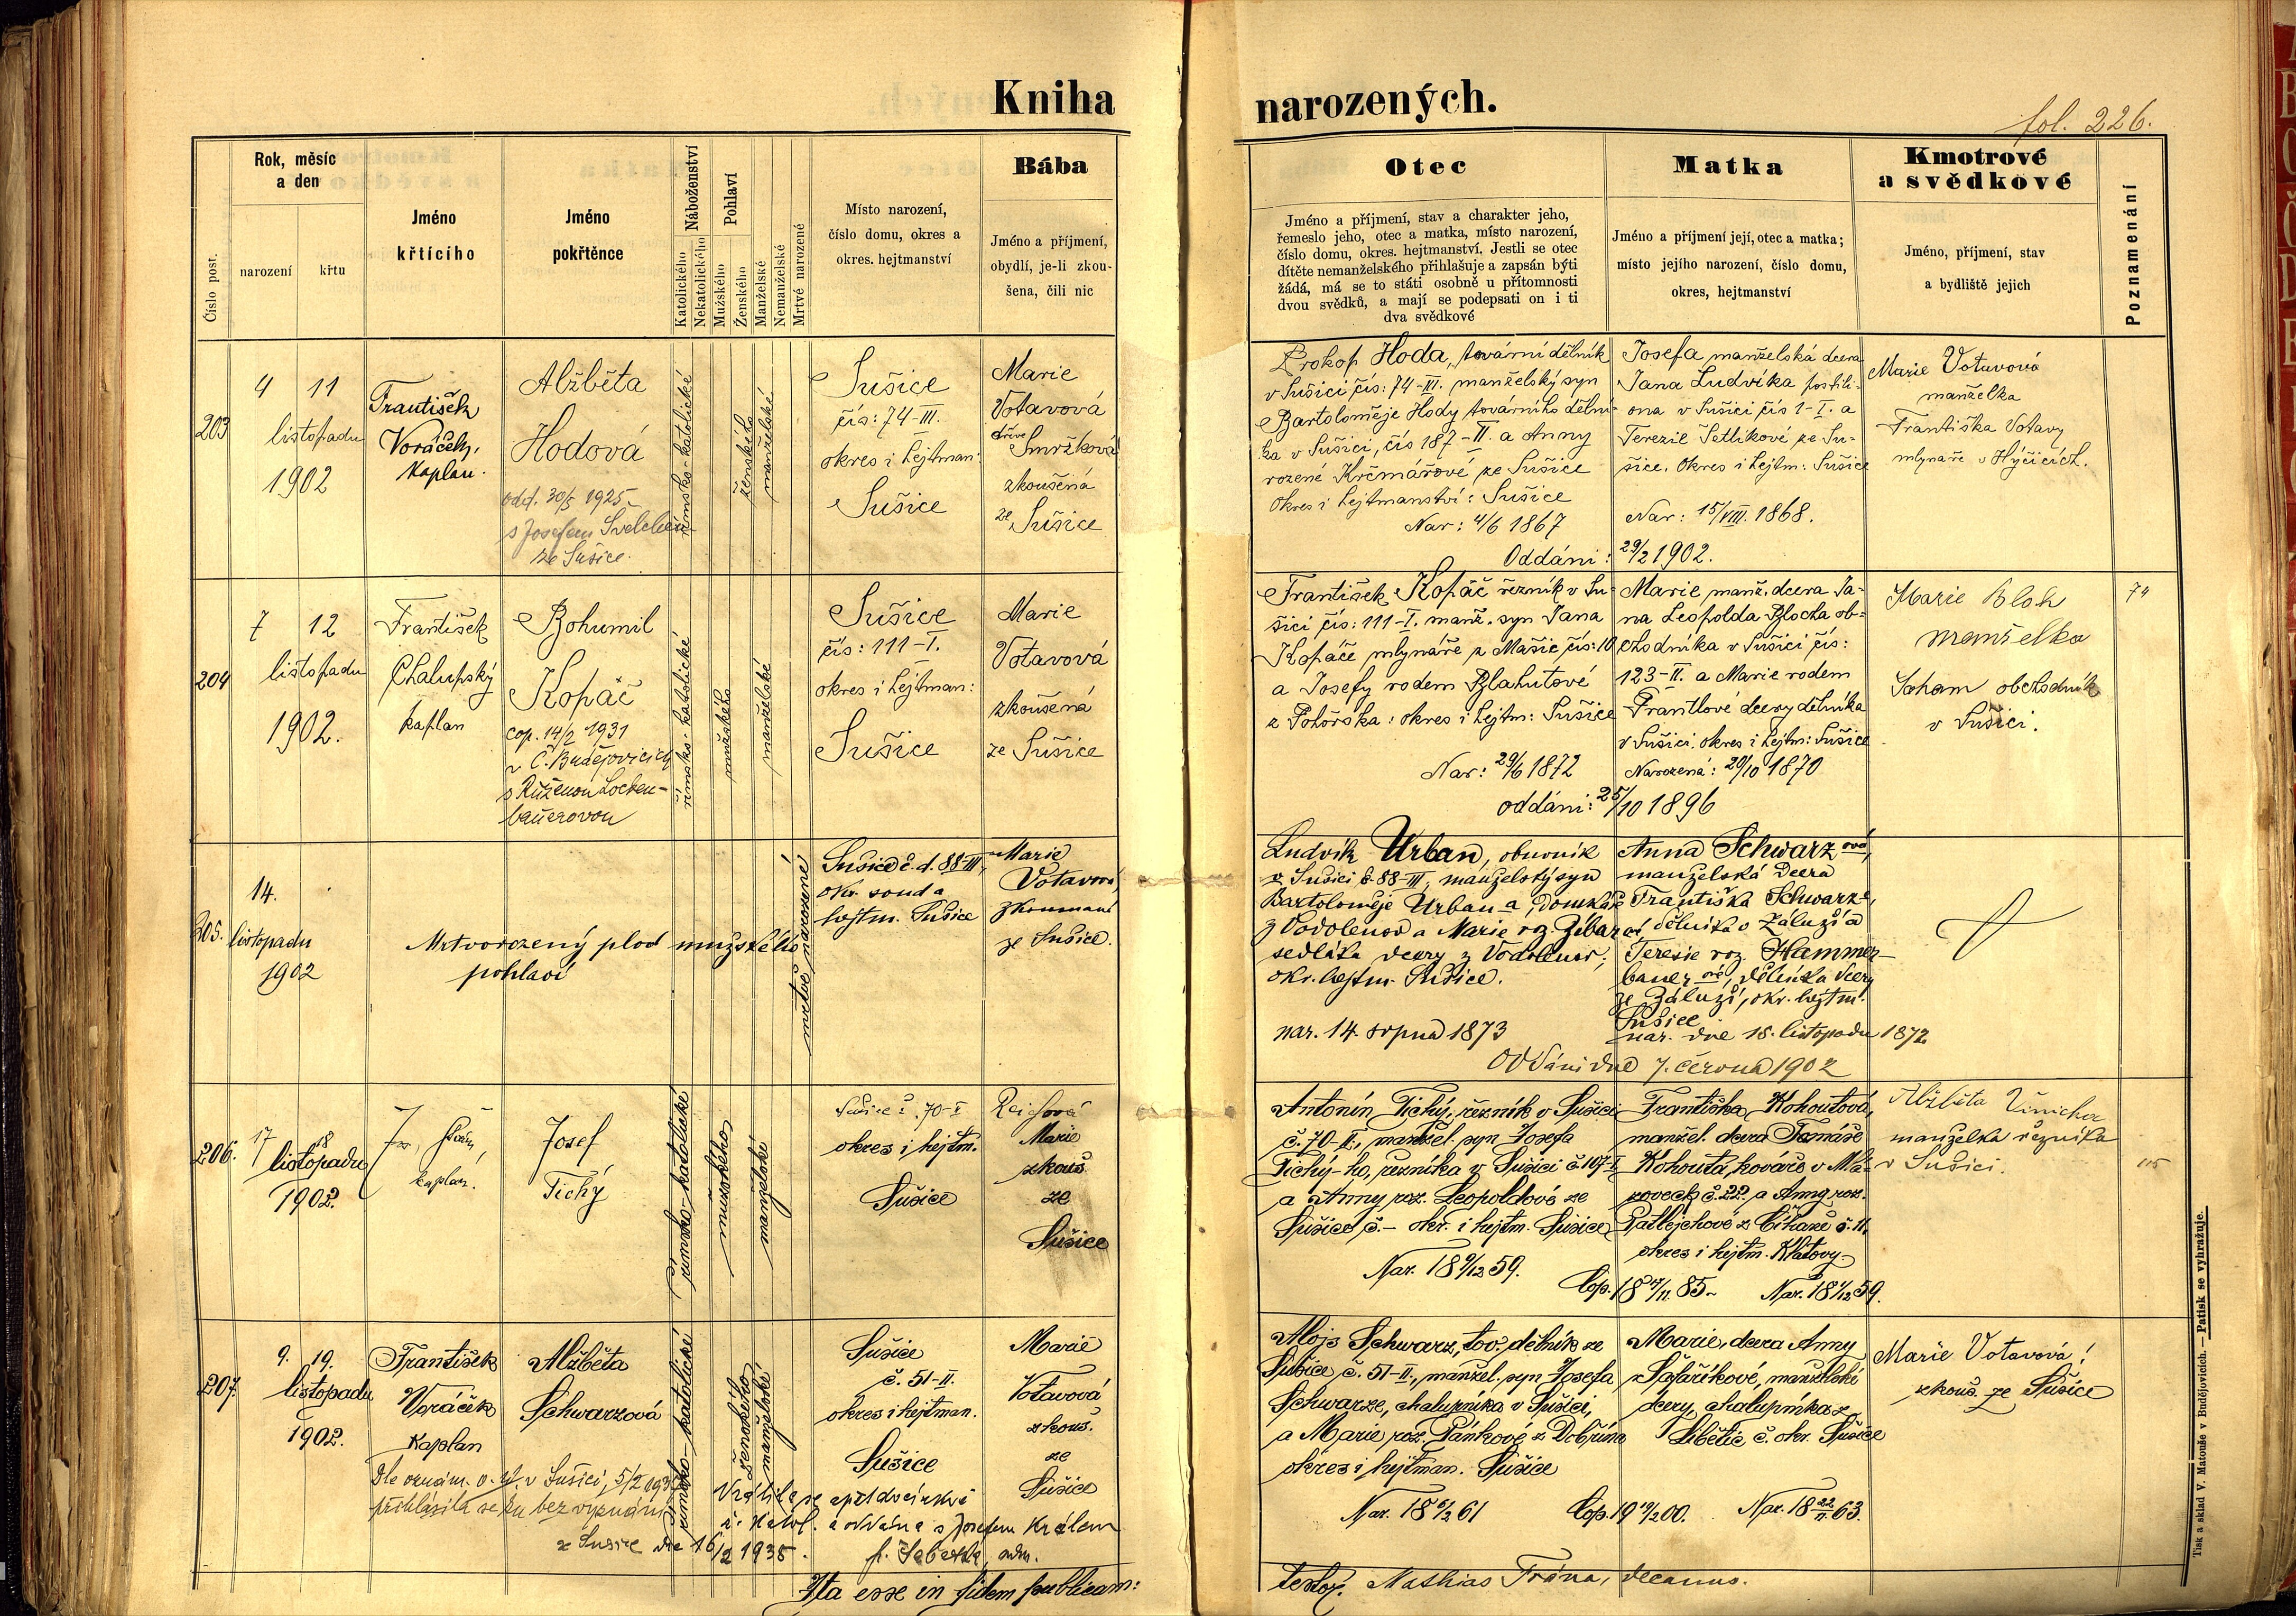 Kniha narozených.
fol. 226.
Číslo post.
Rok, měsíc
a den
narození
křtu
Jméno
křtícího
Jméno
pokřtěnce
Náboženství
Katolického
Nekatolického
Pohlaví
Mužského
Ženského
Manželské
Nemanželské
Mrtvé narozené
Místo narození,
číslo domu, okres a
okres. hejtmanství
Bába
Jméno a příjmení,
obydlí, je-li zkou-
šena, čili nic
Otec
Jméno a příjmení, stav a charakter jeho,
řemeslo jeho, otec a matka, místo narození,
číslo domu, okres. hejtmanství. Jestli se otec
dítěte nemanželského přihlašuje a zapsán býti
žádá, má se to státi osobně u přítomnosti
dvou svědků, a mají se podepsati on i ti
dva svědkové
Matka
Jméno a příjmení její, otec a matka;
místo jejího narození, číslo domu,
okres, hejtmanství
Kmotrové
a svědkové
Jméno, příjmení, stav
a bydliště jejich
Poznamenání
203
4 11
listopadu
1902
František
Voráček,
Kaplan.
Alžběta
Hodová
odd. 30/5 1925
s Josefem
ze Sušice.
římsko-katolické
ženského
manželské
Sušice
čís: 74-III.
okres i hejtman:
Sušice
Marie
Votavová
dříve
Smržková
zkoušená
ze Sušice
Prokop Hoda, tovární dělník
v Sušici čís: 74-III. manželský syn
Bartoloměje Hody továrního dělní-
ka v Sušici, čís 187-II. a Anny
rozené Krčmářové ze Sušice
Okres i hejtmanství: Sušice
Nar: 4/6 1867
Josefa manželská dcera
Jana Ludvíka postili-
ona v Sušici čís 1-I. a
Terezie Šetlíkové ze Su-
šice. Okres i hejtm: Sušice
Nar: 15/VIII. 1868.
Oddáni: 29/2 1902.
Marie Votavová
manželka
Františka Votavy
mlynáře v Hýčicích.
204
7 12
listopadu
1902.
František
Chalupský
kaplan
Bohumil
Kopáč
cop. 14/2 1931
v Č. Budějovicích
s Růženou Locken-
bauerovou
římsko-katolické
mužského
manželské
Sušice
čís: 111-I.
okres i hejtman:
Sušice
Marie
Votavová
zkoušená
ze Sušice
František Kopáč řezník v Su-
šici čís: 111-I. manž. syn Jana
Kopáče mlynáře z Mašic čís: 10
a Josefy rodem Blahutové
z Pohorska: okres i hejtm: Sušice
Nar: 29/6 1872
Marie, manž. dcera Ja-
na Leopolda Blocha ob-
chodníka v Sušici čís:
123-II. a Marie rodem
Frantlové dcery dělníka
v Sušici. okres i hejtm: Sušice
Narozená: 20/10 1870
oddáni: 25/10 1896
Marie Bloh
manželka
obchodník
v Sušici.
74
205.
14.
listopadu
1902
Mrtvorozený plod mužského
pohlaví
mrtvě narozené
Sušice č. d. 88-III,
okr. soud a
hejtm. Sušice
Marie
Votavová,
zkoumaná
ze Sušice.
Ludvík Urban, obuvník
v Sušici č. 88-III, manželský syn
Bartoloměje Urban-a, domkáře
z Vodolenov a Marie roz. Žíbarové
sedláka dcery z Vodolenov;
okr. hejtm. Sušice.
nar. 14. srpna 1873
Anna Schwarz ová,
manželská dcera
Františka Schwarz-a,
dělníka v Záluží a
Terezie roz. Hammer-
bauer ové, dělníka dcery
ze Záluží, okr. hejtm.
Sušice
nar. dne 18. listopadu 1872
Oddáni dne 7. června 1902
206.
17 18
listopadu
1902.
kaplan.
Josef
Tichý
římsko-katolické
mužského
manželské
Sušice č. 70-I
okres i hejtm.
Sušice
Reichová
Marie
zkouš.
ze
Sušice
Antonín Tichý, řezník v Sušici
č. 70-II., manžel. syn Josefa
Tichý-ho, řezníka v Sušici č. 107-I
a Anny roz. Leopoldové ze
Sušice č.- okr. i hejtm. Sušice
Františka Kohoutová,
manžel. dcera Tomáše
Kohouta, kováře v Mla-
zovech č. 22, a Anny roz.
Patlejchové z Číhaně č. 11.
okres i hejtm. Klatovy
Cop. 18 17/11. 85
Alžběta
manželka řezníka
v Sušici.
115
207.
9. 19.
listopadu
1902.
František
Voráček
Kaplan
Alžběta
Schwarzová
římsko-katolické
ženského
manželské
Sušice
č. 51-II.
okres i hejtman.
Sušice
Marie
Votavová
zkouš.
ze
Sušice
Alois Schwarz, tov. dělník ze
Sušice č. 51-II., manžel. syn Josefa
Schwarze, chalupníka v Sušici,
a Marie roz. Pánkové z Dobřína
okres i hejtman. Sušice
Marie, dcera Anny
Šafaříkové, manželské
dcery, chalupníka z
Libětic č. okr. Sušice
Nar. 18 22/11 63.
Marie Votavová,
zkouš. ze Sušice
Dle oznám. o. úř. v Sušici, 5/2
přihlásila se ku bez vyznání
Vrátila se
a oddána s Josefem Králem
v Sušici dne 16/2 1935.
Ita esse in fidem publicam:
testor. Mathias Frána, decanus.
Tisk a sklad V. Matouše v Budějovicích. — Patisk se vyhražuje.